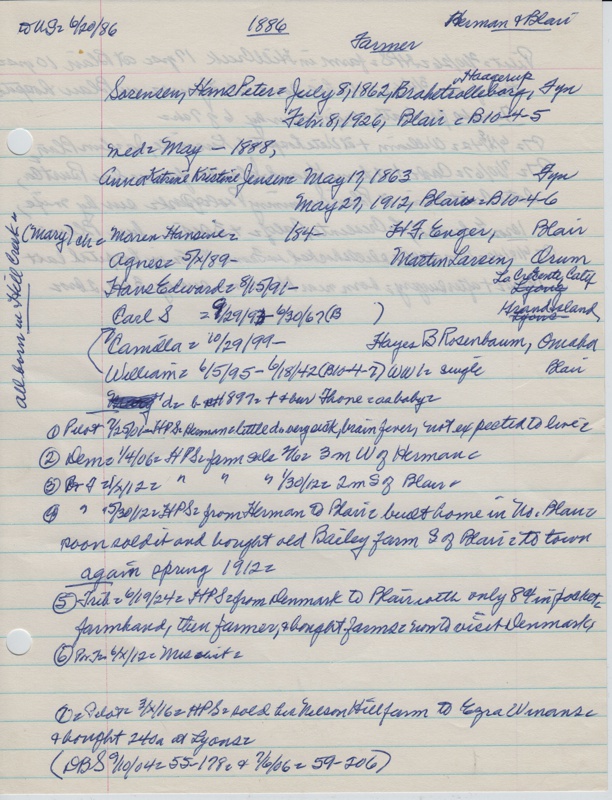 to US= 6/20/86 1886 Herman & Blair
Farmer
Haagerup
Sorensen, Hans Peter= July 8, 1862, Brahetrolleborg, Fyn
Feb. 8, 1926, Blair = B10-4-5
md= May - 1888,
Anna Katrine Kristine Jensen= May 17, 1863 Fyn
May 27, 1912, Blair= B10-4-6
(Mary) ch= Maren Hansine= 184 H.F. Enger, Blair
Agnes= 5/x/89- Martin Larsen, Orum
Hans Edward= 8/15/91- La Crescenta, Calif
Carl S = 9/29/93-6/30/67(B ) Grand Island,
Camilla = 10/29/99- Hayes B Rosenbaum, Omaha
William= 6/5/95- 6/18/42 (B10-4-7) WWI= single Blair
d= 1897= Thone= as baby=
All born in Hill Creek=
① Pilot 7/25/01- HPS= Herman= little dau very sick, brain fever, not expected to live=
② Dem= 1/4/06= HPS= farm sale 2/6= 3m W of Herman=
③ 1/x/12= " " " 1/30/12= 2m S of Blair=
④ " 5/30/12= HPS= from Herman to Blair= built home in No. Blair=
soon sold it and bought old Bailey farm S of Blair= to town
again spring 1912=
⑤ Trib= 6/19/24= HPS= from Denmark to Blair with only 8¢ in pocket=
farmhand, then farmer, & bought farms= now to visit Denmark,
⑥ 6/x/12= Mrs
①= Pilot= 3/x/16= HPS= sold his Nelson Hill farm to Ezra Winans=
& bought 240a at Lyons=
(DBS 9/10/04= 55-178= & 7/6/06= 59-206)